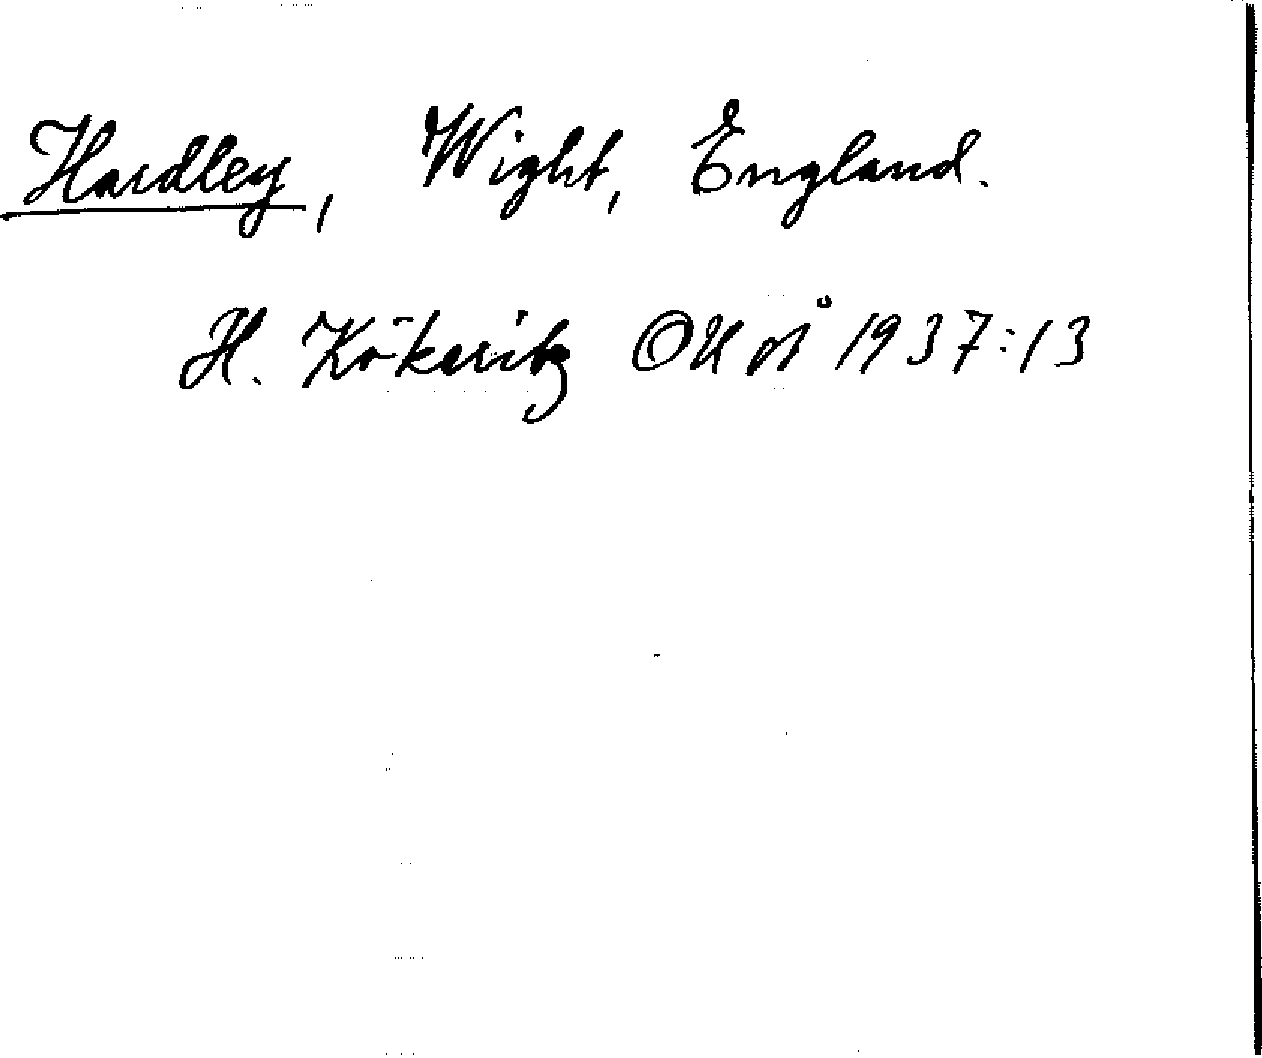 Hardley, Wight, England.
H. Kökeritz OUÅ 1937:13